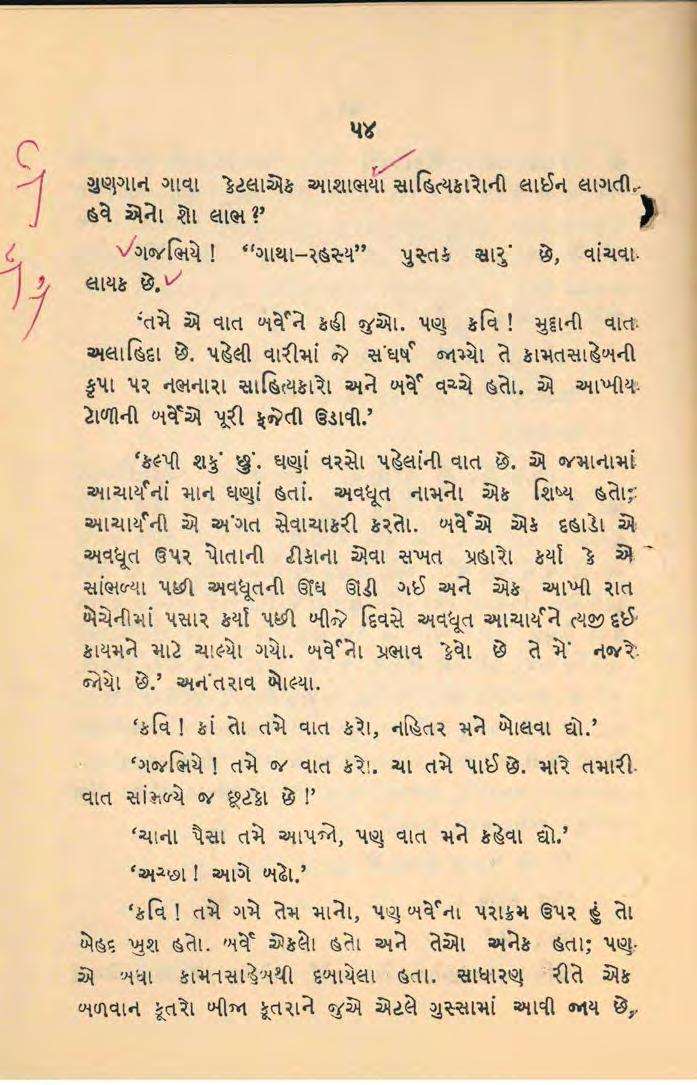 ૫૪
ગુણગાન ગાવા કેટલાએક આશાભર્યા સાહિત્યકારોની લાઈન લાગતી.
હવે એનો શો લાભ ?’
ગજભિયે ! “ગાથા–રહસ્ય” પુસ્તક સારું છે, વાંચવા
લાયક છે.
‘તમે એ વાત બર્વેને કહી જુઓ. પણ કવિ ! મુદ્દાની વાત
અલાહિદા છે. પહેલી વારીમાં જે સંઘર્ષ જામ્યો તે કામતસાહેબની
કૃપા પર નભનારા સાહિત્યકારો અને બર્વે વચ્ચે હતો. એ આખીય
ટોળીની બર્વેએ પૂરી ફજેતી ઉડાવી.’
‘કલ્પી શકું છું. ઘણાં વરસો પહેલાંની વાત છે. એ જમાનામાં
આચાર્યનાં માન ઘણાં હતાં. અવધૂત નામનો એક શિષ્ય હતો;
આચાર્યની એ અંગત સેવાચાકરી કરતો. બર્વેએ એક દહાડો એ
અવધૂત ઉપર પોતાની ટીકાના એવા સખત પ્રહારો કર્યા કે એ
સાંભળ્યા પછી અવધૂતની ઊંઘ ઊડી ગઈ અને એક આખી રાત
બેચેનીમાં પસાર કર્યા પછી બીજે દિવસે અવધૂત આચાર્યને ત્યજી દઈ
કાયમને માટે ચાલ્યો ગયો. બર્વેનો પ્રભાવ કેવો છે તે મેં નજરે
જોયો છે.’ અનંતરાવ બોલ્યા.
‘કવિ ! કાં તો તમે વાત કરો, નહિતર મને બોલવા દ્યો.’
‘ગજભિયે ! તમે જ વાત કરો. ચા તમે પાઈ છે. મારે તમારી
વાત સાંભળ્યે જ છૂટકો છે !’
‘ચાના પૈસા તમે આપજો, પણ વાત મને કહેવા દ્યો.’
‘અચ્છા ! આગે બઢો.’
‘કવિ ! તમે ગમે તેમ માનો, પણ બર્વેના પરાક્રમ ઉપર હું તો
બેહદ ખુશ હતો. બર્વે એકલો હતો અને તેઓ અનેક હતા; પણ
એ બધા કામતસાહેબથી દબાયેલા હતા. સાધારણ રીતે એક
બળવાન કૂતરો બીજા કૂતરાને જુએ એટલે ગુસ્સામાં આવી જાય છે,